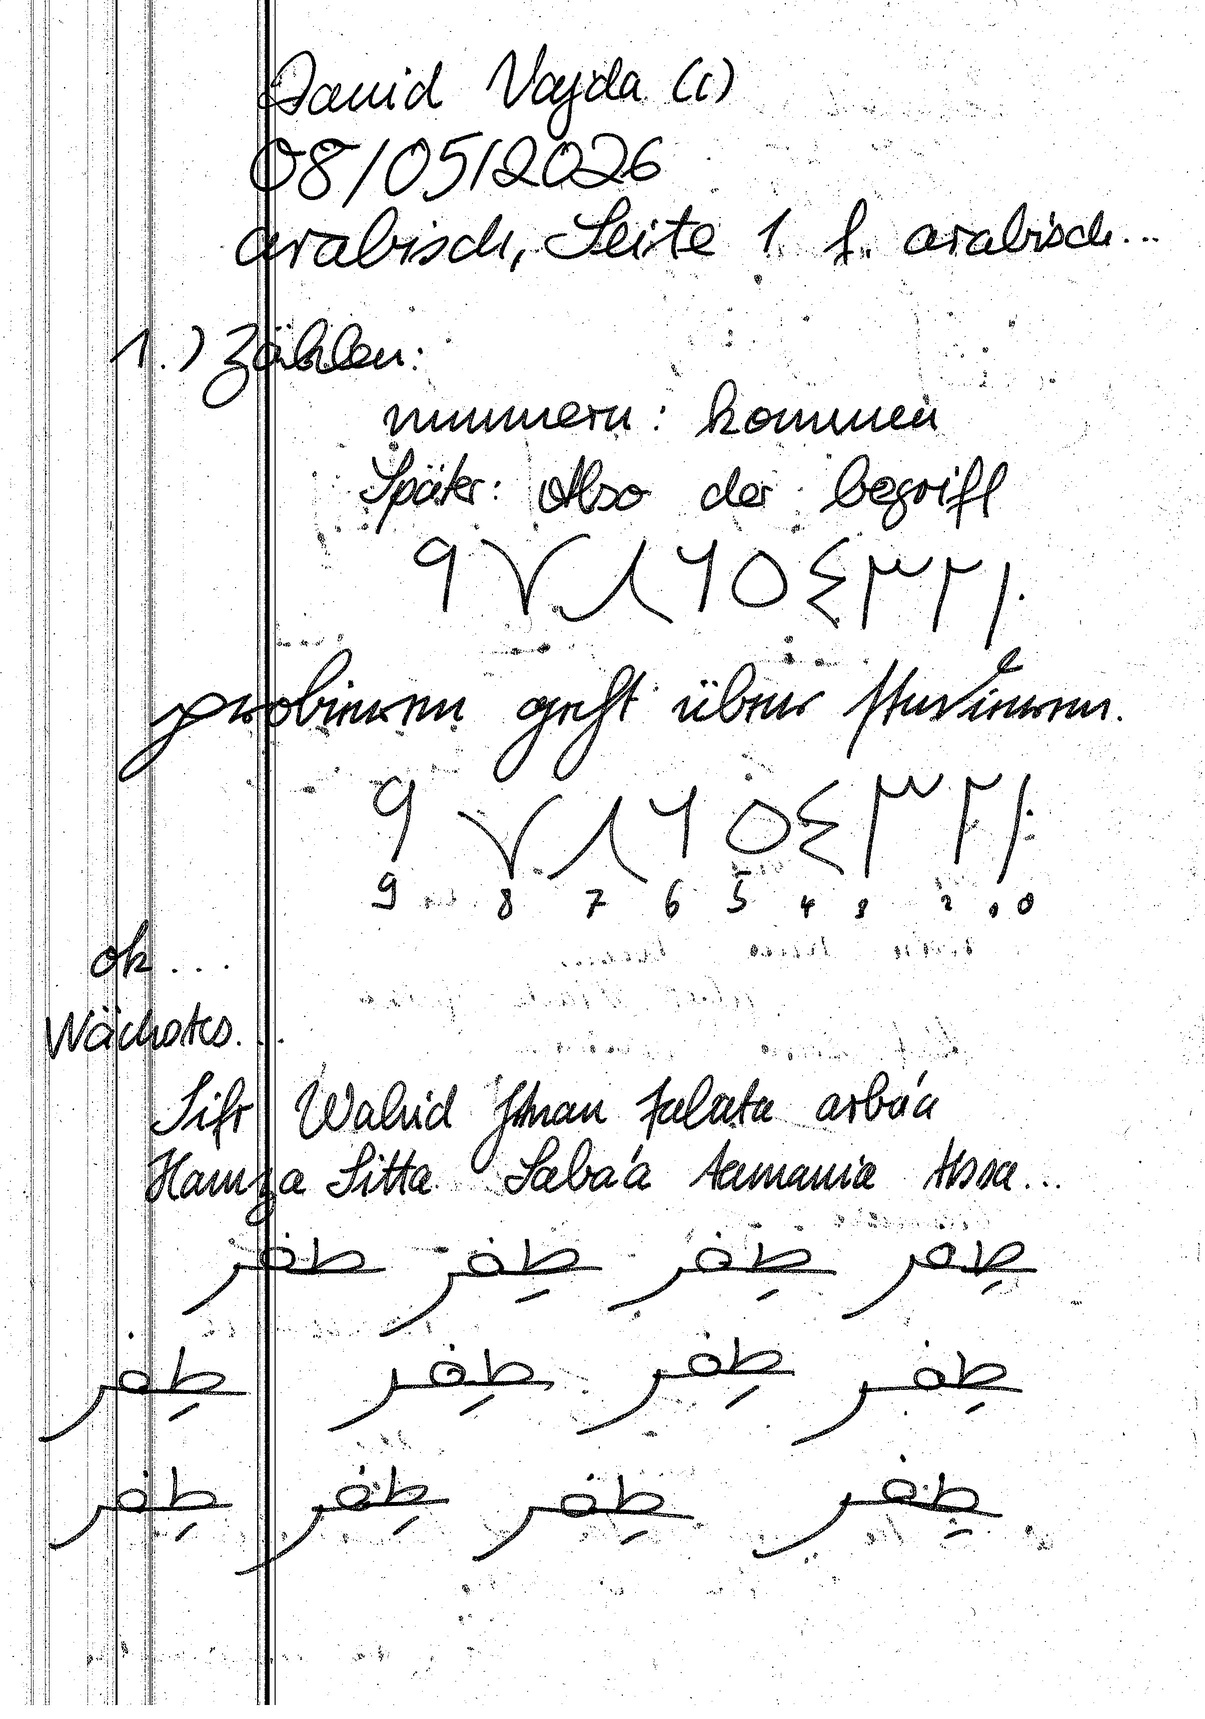 David Vajda (c)
08/05/2026
arabisch, Seite 1 f. arabisch...
1.) Zählen:
nummern: kommen
Später: Also der begriff
٩ ٧ ٨ ٦ ٥ ٤ ٣ ٢ ١ ٠
probieren geht über studieren.
٩ ٧ ٨ ٦ ٥ ٤ ٣ ٢ ١ ٠
9 8 7 6 5 4 3 2 1 0
ok...
Nächstes...
Sifr Wahid Jthnan talata arba'a
Hamza Sitta Saba'a tamania tissa...
طفر طِفر طِفر طِفر
طِفر طِفر طِفر طِفر
طِفر طِفر طِفر طِفر